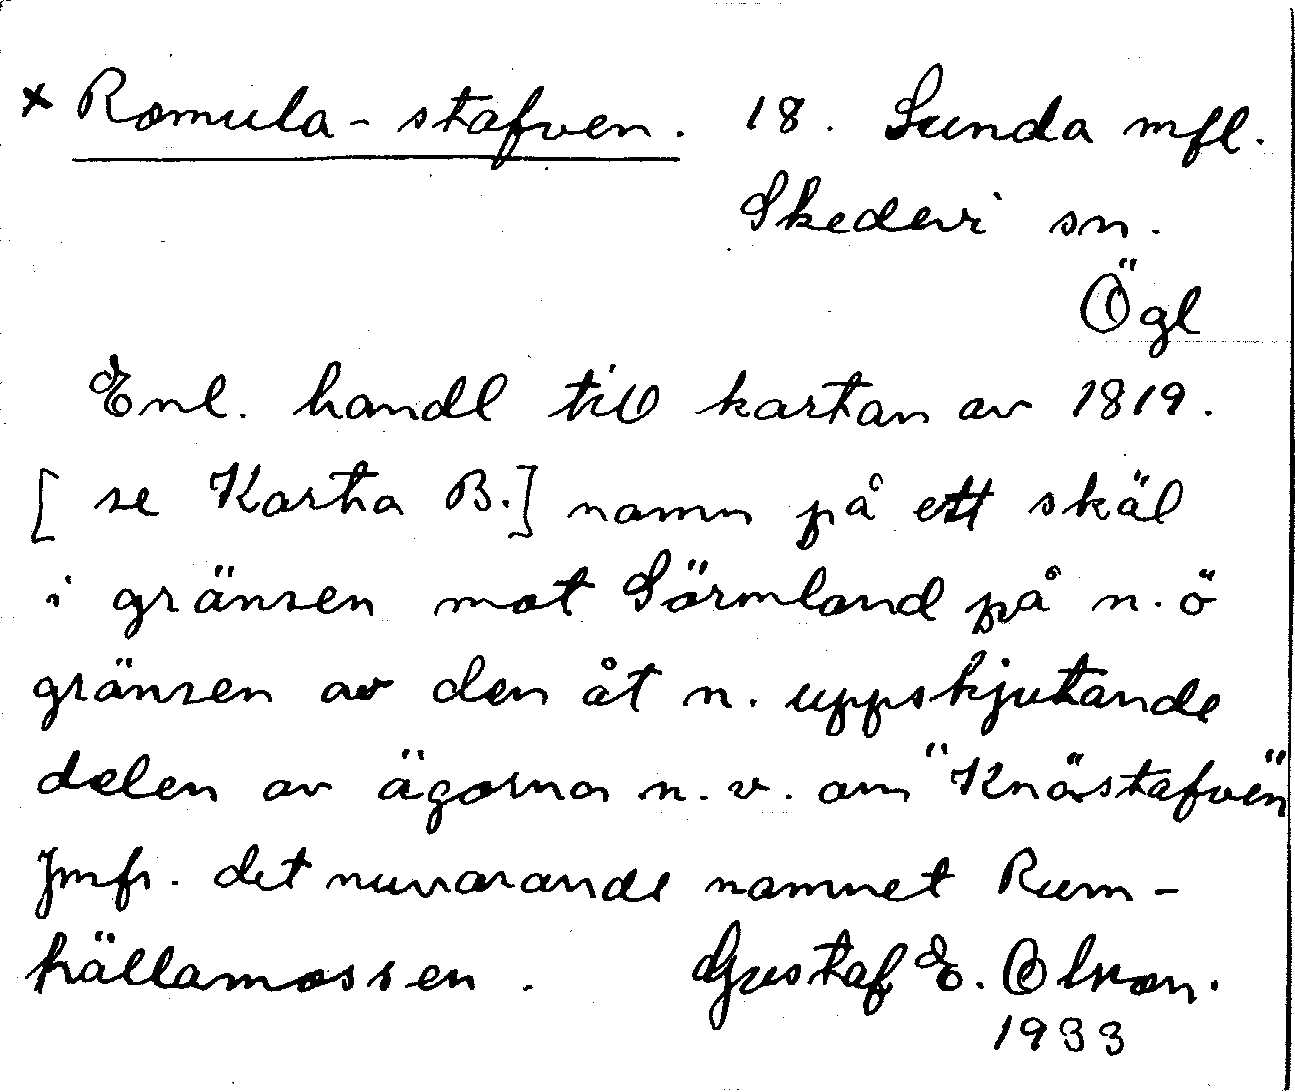 x Romula-stafven. 18. Sunda mfl.
Skedevi sn.
Ögl
Enl. handl till kartan av 1819.
[ se Karta B.] namn på ett skäl
i gränsen mot Sörmland på n. ö
gränsen av den åt n. uppskjutande
delen av ägorna n. v. om "Knästafven"
Jmfr. det nuvarande namnet Rum-
hällamossen. Gustaf E. Olson.
1933